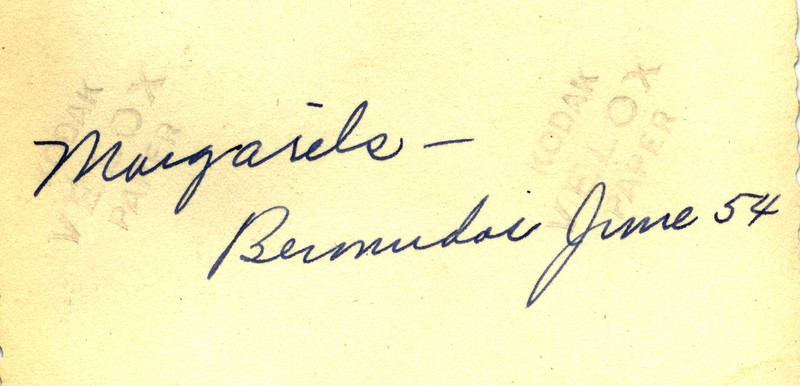 KODAK
VELOX
PAPER
KODAK
VELOX
PAPER
Margarets —
Bermudas June 54